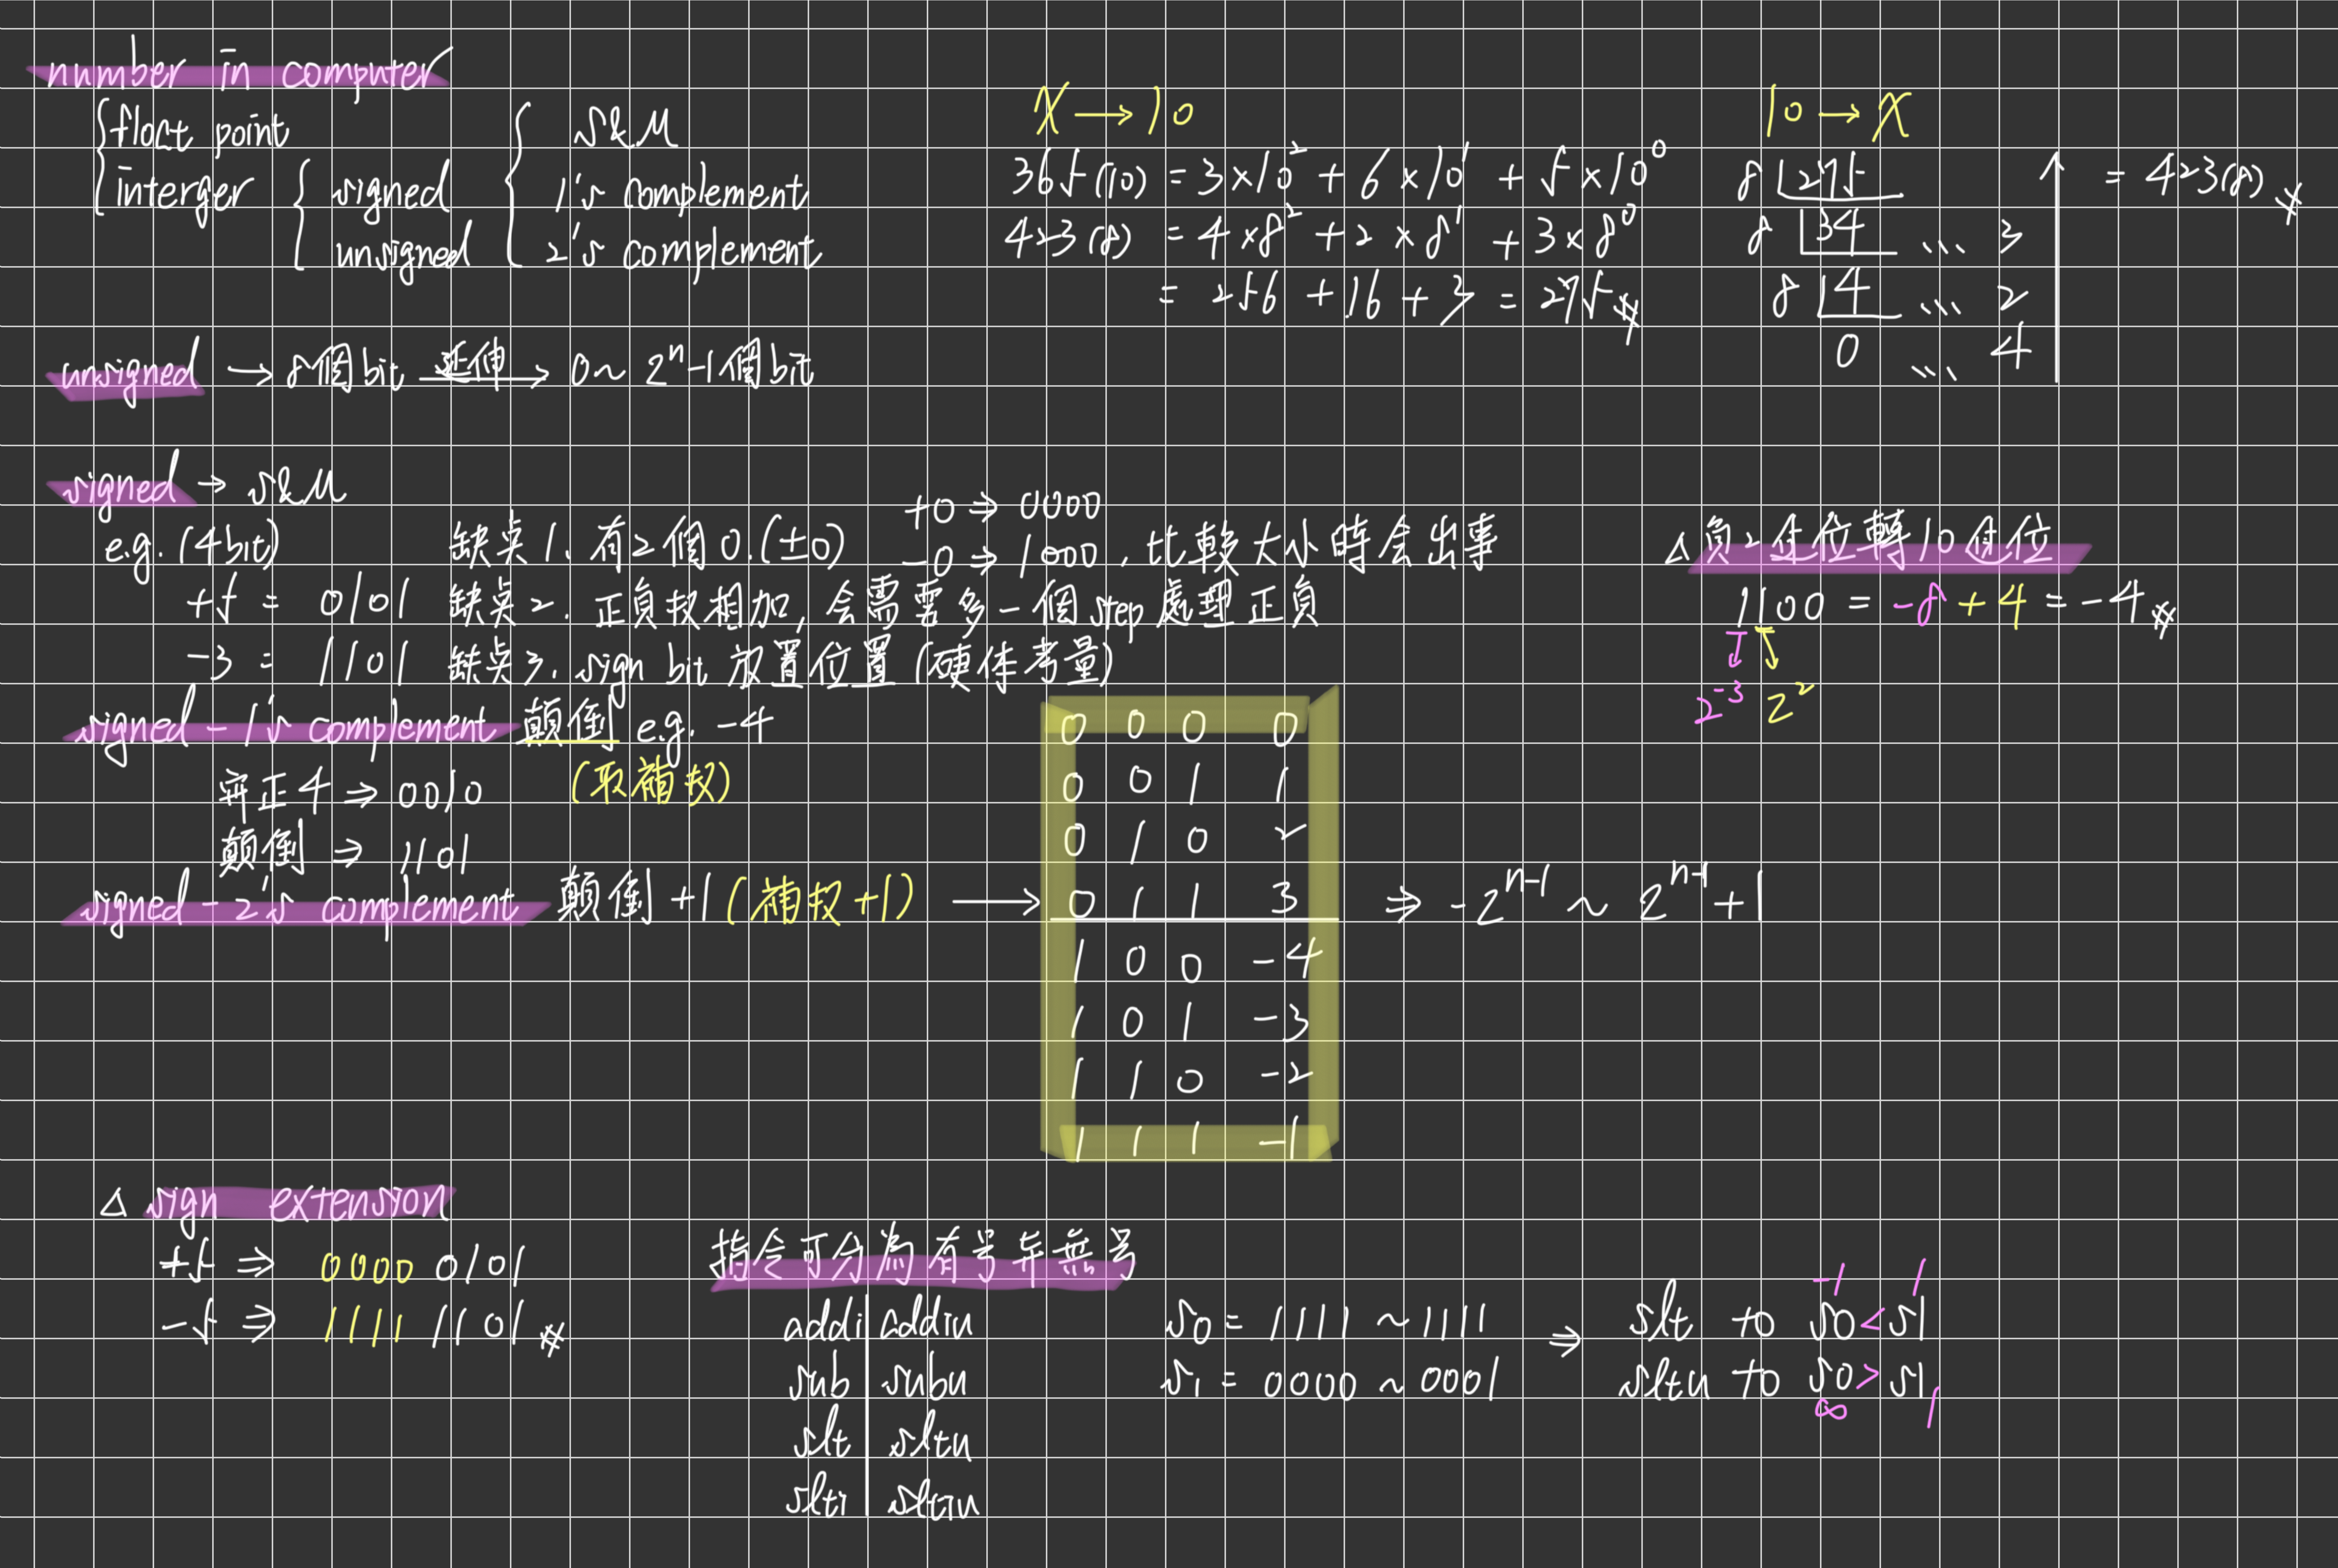 number in computer
float point
interger
signed
unsigned
S&M
1's complement
2's complement
X → 10
365(10) = 3×10² + 6×10¹ + 5×10⁰
423(8) = 4×8² + 2×8¹ + 3×8⁰
= 256 + 16 + 3 = 275
10 → X
8 275 = 423(8)
8 34 ... 3
8 4 ... 2
0 ... 4
unsigned → 8個bit 延伸→ 0 ~ 2ⁿ-1個bit
signed → S&M
e.g. (4bit)
+5 = 0101
-3 = 1101
缺点1. 有2個0.(±0) +0 ⇒ 0000 -0 ⇒ 1000 , 比較大小時会出事
缺点2. 正負权相加, 会需要多一個step處理正負
缺点3. sign bit 放置位置 (硬体考量)
△負2進位轉10進位
1100 = -8 + 4 = -4
2⁻³ 2²
signed - 1's complement 顛倒 e.g. -4
(取補权)
正4 ⇒ 0010
顛倒 ⇒ 1101
signed - 2's complement 顛倒+1 (補权+1) →
0 0 0 0
0 0 1 1
0 1 0 2
0 1 1 3
1 0 0 -4
1 0 1 -3
1 1 0 -2
1 1 1 -1
⇒ -2ⁿ⁻¹ ~ 2ⁿ⁻¹+1
△ sign extension
+5 ⇒ 0000 0101
-5 ⇒ 1111 1101
指令可分為有号無号
addi addiu
sub subu
slt sltu
slti sltiu
S0 = 1111 ~ 1111
S1 = 0000 ~ 0001
⇒
-1 1
slt t0 S0 < S1
sltu t0 S0 > S1
∞ 1